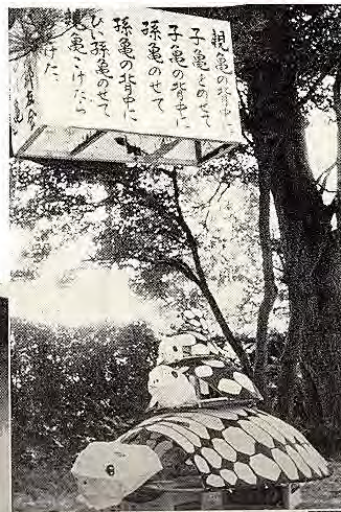 親亀の背中に
子亀をのせて
子亀の背中に
孫亀のせて
孫亀の背中に
ひい孫亀のせて
親亀こけたら
けた。